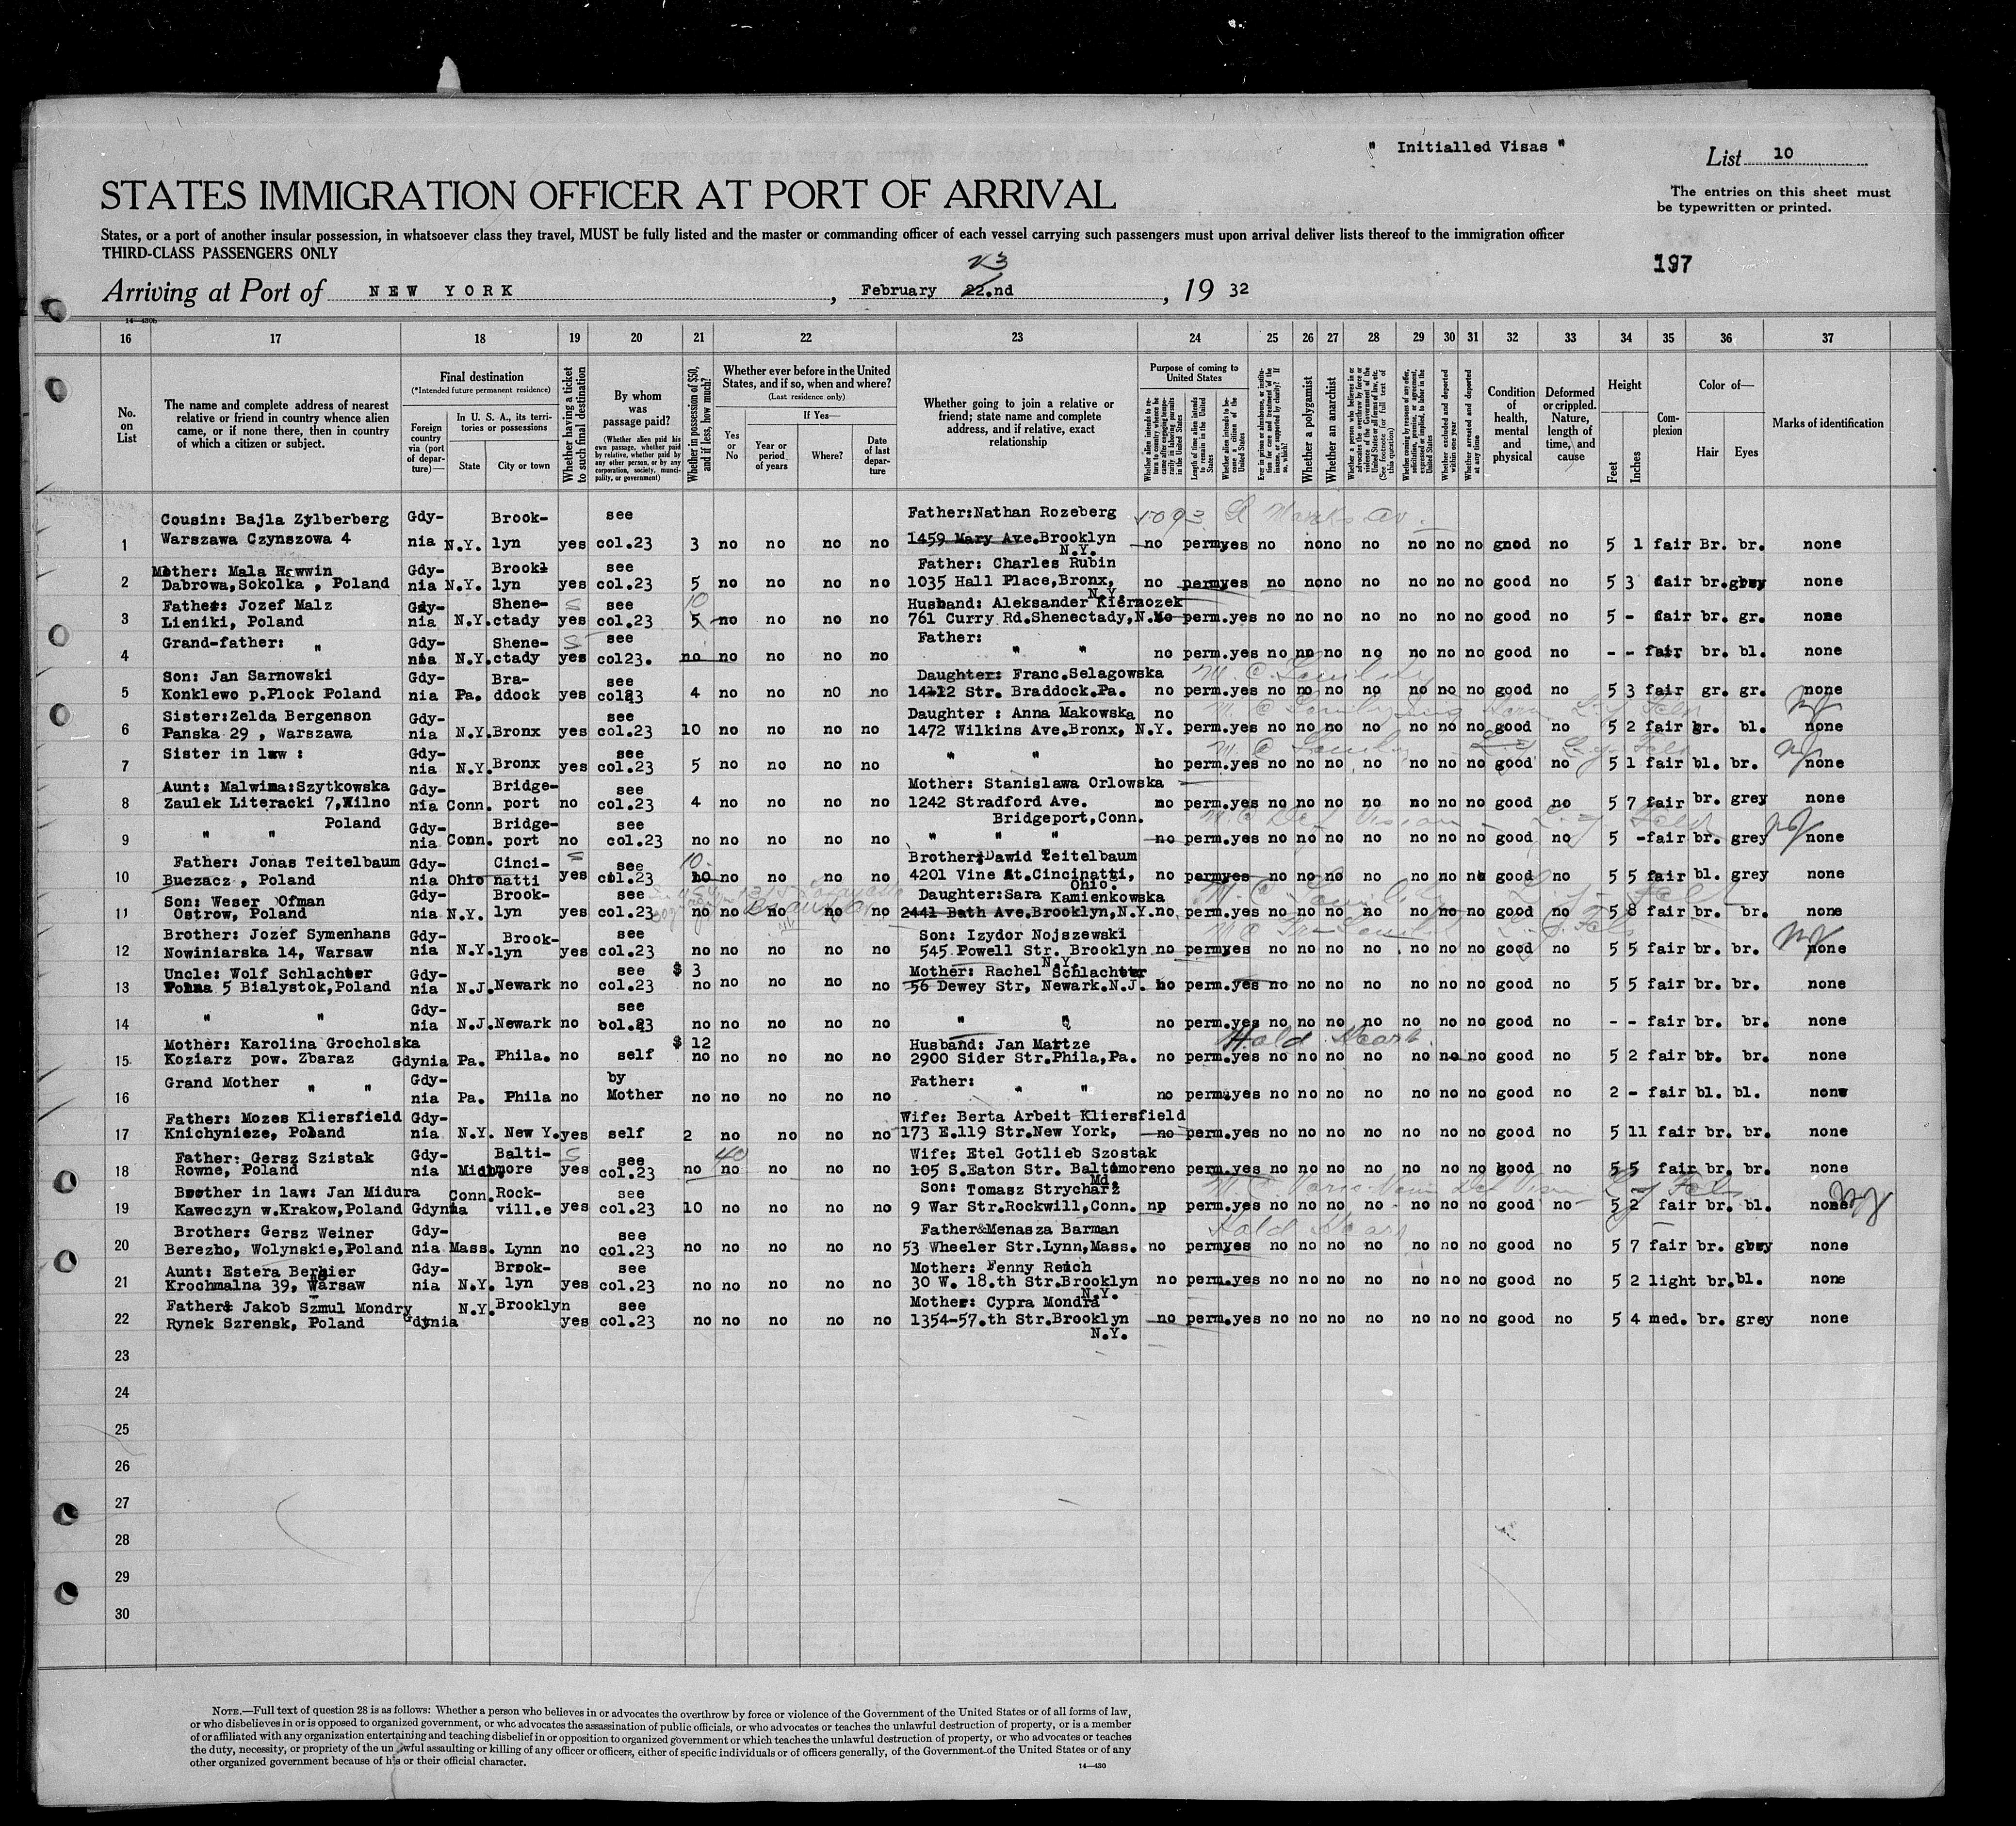 " Initialled Visas "
List 10
STATES IMMIGRATION OFFICER AT PORT OF ARRIVAL
The entries on this sheet must
be typewritten or printed.
States, or a port of another insular possession, in whatsoever class they travel, MUST be fully listed and the master or commanding officer of each vessel carrying such passengers must upon arrival deliver lists thereof to the immigration officer
THIRD-CLASS PASSENGERS ONLY
197
23
Arriving at Port of NEW YORK, February 22.nd, 19 32
14—430b
16 17 18 19 20 21 22 23 24 25 26 27 28 29 30 31 32 33 34 35 36 37
No. on List
The name and complete address of nearest relative or friend in country whence alien came, or if none there, then in country of which a citizen or subject.
Final destination
(*Intended future permanent residence)
Foreign country via (port of departure)—
In U. S. A., its territories or possessions
State
City or town
Whether having a ticket to such final destination
By whom was passage paid?
(Whether alien paid his own passage, whether paid by relative, whether paid by any other person, or by any corporation, society, municipality, or government)
Whether in possession of $50, and if less, how much?
Whether ever before in the United States, and if so, when and where?
(Last residence only)
Yes or No
If Yes—
Year or period of years
Where?
Date of last departure
Whether going to join a relative or friend; state name and complete address, and if relative, exact relationship
Purpose of coming to United States
Whether alien intends to return to country whence he came after engaging temporarily in laboring pursuits in the United States
Length of time alien intends to remain in the United States
Whether alien intends to become a citizen of the United States
Ever in prison or almshouse, or institution for care and treatment of the insane, or supported by charity? If so, which?
Whether a polygamist
Whether an anarchist
Whether a person who believes in or advocates the overthrow by force or violence of the Government of the United States or all forms of law, etc. (See footnote for full text of this question)
Whether coming by reasons of any offer, solicitation, promise, or agreement, expressed or implied, to labor in the United States
Whether excluded and deported within one year
Whether arrested and deported at any time
Condition of health, mental and physical
Deformed or crippled. Nature, length of time, and cause
Height
Feet
Inches
Complexion
Color of—
Hair
Eyes
Marks of identification
Cousin: Bajla Zylberberg Gdy- Brook- see Father:Nathan Rozeberg 1093 St Marks Av.
1 Warszawa Czynszowa 4 nia N.Y. lyn yes col.23 3 no no no no 1459 Mary Ave.Brooklyn no perm yes no no no no no no no good no 5 1 fair Br. br. none
N.Y.
Mother: Mala Rewwin Gdy- Brook- see Father: Charles Rubin
2 Dabrowa,Sokolka , Poland nia N.Y. lyn yes col.23 5 no no no no 1035 Hall Place,Bronx, no perm yes no no no no no no no good no 5 3 fair br. grey none
N.Y.
Father: Jozef Malz Gdy- Shene- S see 10 Husband: Aleksander Kiernozek
3 Lieniki, Poland nia N.Y. ctady yes col.23 5 no no no no 761 Curry Rd.Shenectady,N.Y. perm.yes no no no no no no no good no 5 - fair br. gr. none
Grand-father: " Gdy- Shene- S see Father:
4 nia N.Y. ctady yes col23. no no no no no " " no perm.yes no no no no no no no good no - - fair br. bl. none
Son: Jan Sarnowski Gdy- Bra- see Daughter: Franc.Selagowska
5 Konklewo p.Plock Poland nia Pa. ddock yes col23 4 no no no no 1412 Str. Braddock.Pa. no perm.yes no no no no no no no good no 5 3 fair gr. gr. none
Sister:Zelda Bergenson Gdy- see Daughter : Anna Makowska no
6 Panska 29 , Warszawa nia N.Y. Bronx yes col.23 10 no no no no 1472 Wilkins Ave.Bronx, N.Y. perm.yes no no no no no no no good no 5 2 fair gr. bl. none
Sister in law : Gdy- see
7 nia N.Y. Bronx yes col.23 5 no no no no " " no perm.yes no no no no no no no good no 5 1 fair bl. br. none
Aunt: Malwina:Szytkowska Gdy- Bridge- see Mother: Stanislawa Orlowska
8 Zaulek Literacki 7,Wilno nia Conn. port no col.23 4 no no no no 1242 Stradford Ave. no perm.yes no no no no no no no good no 5 7 fair br. grey none
Poland Bridgeport,Conn.
9 " " Gdy-nia Conn. Bridge-port no see col.23 no no no no no " " " no perm.yes no no no no no no no good no 5 - fair br. grey none
Father: Jonas Teitelbaum Gdy- Cinci- see 10. Brother: Dawid Teitelbaum
10 Buczacz , Poland nia Ohio natti yes col.23 no no no no 4201 Vine St.Cincinatti, no perm yes no no no no no no no good no 5 5 fair bl. grey none
Ohio.
Son: Weser Ofman Gdy- Brook- see Daughter:Sara Kamienkowska
11 Ostrow, Poland nia N.Y. lyn yes col.23 no no no no 2441 Bath Ave.Brooklyn,N.Y. no. perm.yes no no no no no no no good no 5 8 fair br. br. none
Brother: Jozef Symenhans Gdy- Brook- see Son: Izydor Nojszewski
12 Nowiniarska 14, Warsaw nia N.Y. lyn yes col.23 no no no no no 545 Powell Str. Brooklyn no perm yes no no no no no no no good no 5 5 fair br. br. none
N.Y.
Uncle: Wolf Schlachter Gdy- see $ 3 Mother: Rachel Schlachter
13 5 Bialystok,Poland nia N.J. Newark no col.23 no no no no no 56 Dewey Str, Newark.N.J. no perm.yes no no no no no no no good no 5 5 fair br. br. none
Gdy- see
14 " " nia N.J. Newark no col.23 no no no no no " " no perm.yes no no no no no no no good no - - fair br. br. none
Mother: Karolina Grocholska $ 12 Husband: Jan Martze Hold
15 Koziarz pow. Zbaraz Gdynia Pa. Phila. no self no no no no no 2900 Sider Str.Phila,Pa. no perm.yes no no no no no no no good no 5 2 fair br. br. none
Grand Mother " " Gdy- by Father:
16 nia Pa. Phila no Mother no no no no no " " no perm.yes no no no no no no no good no 2 - fair bl. bl. none
Father: Mozes Kliersfield Gdy- Wife: Berta Arbeit Kliersfield
17 Knichynieze, Poland nia N.Y. New Y. yes self 2 no no no no 173 E.119 Str.New York, no perm.yes no no no no no no no good no 5 11 fair br. br. none
Father: Gersz Szistak Gdy- Balti- S see 40 Wife: Etel Gotlieb Szostak
18 Rowne, Poland nia more yes col.23 no no no no no 105 S.Eaton Str. Baltimore no perm.yes no no no no no no no good no 5 5 fair br. br. none
Md.
Brother in law: Jan Midura Conn. Rock- see Son: Tomasz Strycharz
19 Kaweczyn w.Krakow,Poland Gdynia ville yes col.23 10 no no no no 9 War Str.Rockwill,Conn. np perm.yes no no no no no no no good no 5 2 fair br. bl. none
Brother: Gersz Weiner Gdy- see Father&Menasza Barman Hold
20 Berezno, Wolynskie,Poland nia Mass. Lynn no col.23 no no no no no 53 Wheeler Str.Lynn,Mass. no perm yes no no no no no no no good no 5 7 fair br. grey none
Aunt: Estera Gdy- Brook- see Mother: Fenny Reich
21 Krochmalna 39, Warsaw nia N.Y. lyn yes col.23 no no no no no 30 W. 18.th Str.Brooklyn no perm.yes no no no no no no no good no 5 2 light br. bl. none
N.Y.
Father: Jakob Szmul Mondry N.Y. Brooklyn see Mother: Cypra Mondra
22 Rynek Szrensk, Poland Gdynia yes col.23 no no no no no 1354-57.th Str.Brooklyn no perm.yes no no no no no no no good no 5 4 med. br. grey none
N.Y.
23
24
25
26
27
28
29
30
NOTE.—Full text of question 28 is as follows: Whether a person who believes in or advocates the overthrow by force or violence of the Government of the United States or of all forms of law,
or who disbelieves in or is opposed to organized government, or who advocates the assassination of public officials, or who advocates or teaches the unlawful destruction of property, or is a member
of or affiliated with any organization entertaining and teaching disbelief in or opposition to organized government or which teaches the unlawful destruction of property, or who advocates or teaches
the duty, necessity, or propriety of the unlawful assaulting or killing of any officer or officers, either of specific individuals or of officers generally, of the Government of the United States or of any
other organized government because of his or their official character.
14—430